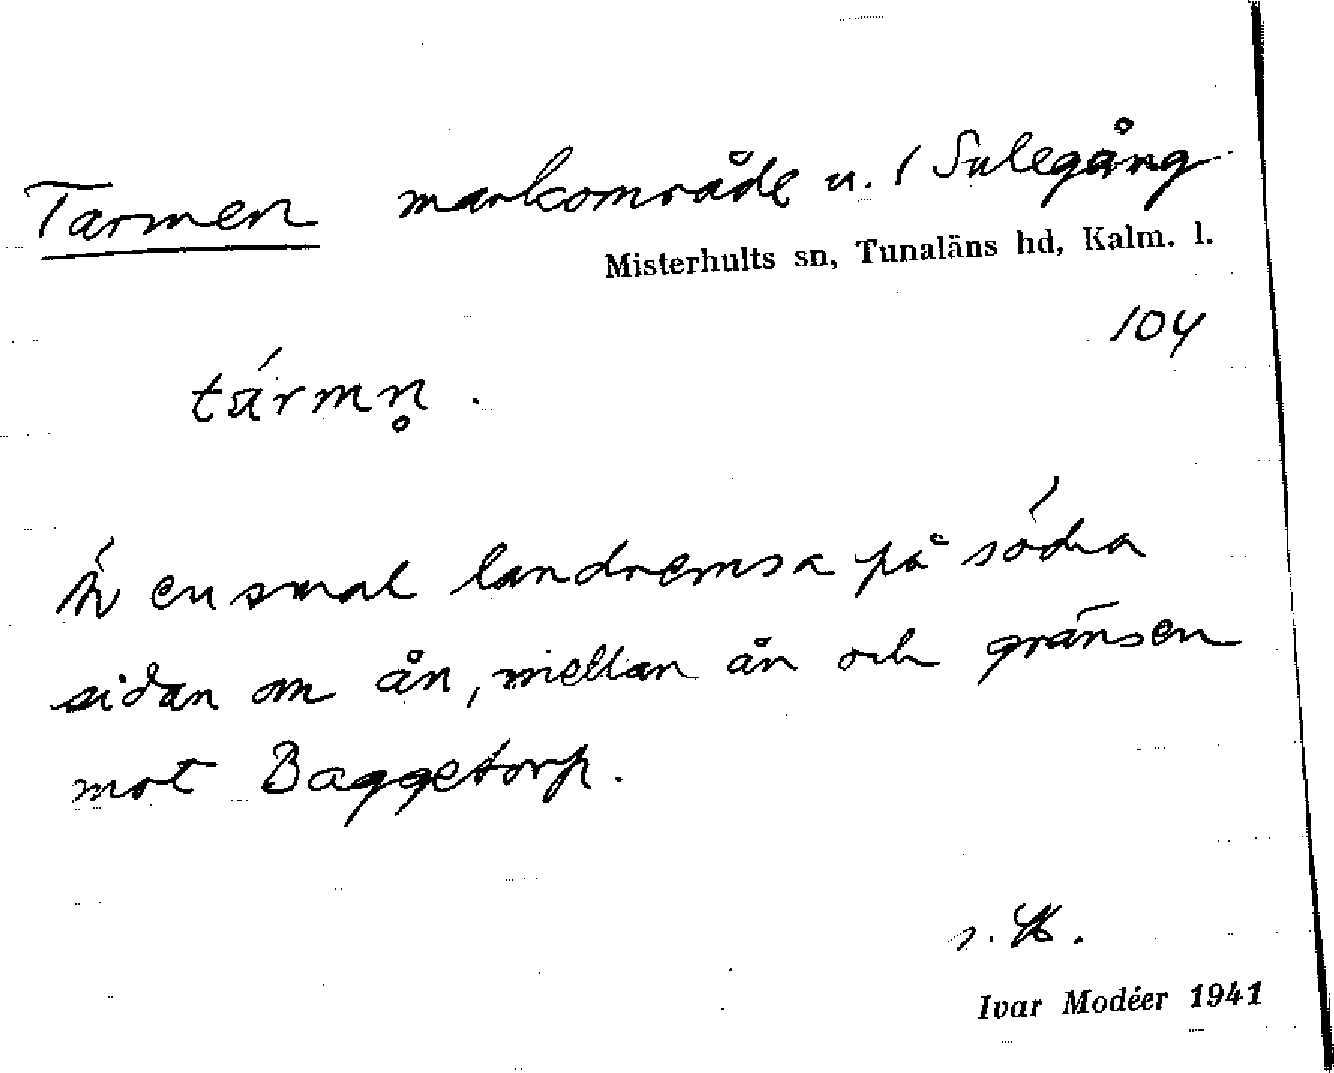 Tarmen markområde u. 1 Sulegång
Misterhults sn, Tunaläns hd, Kalm. l.
104
tármn̥.
Är en smal landremsa på södra
sidan om ån, mellan ån och gränsen
mot Baggetorp.
Ivar Modéer 1941